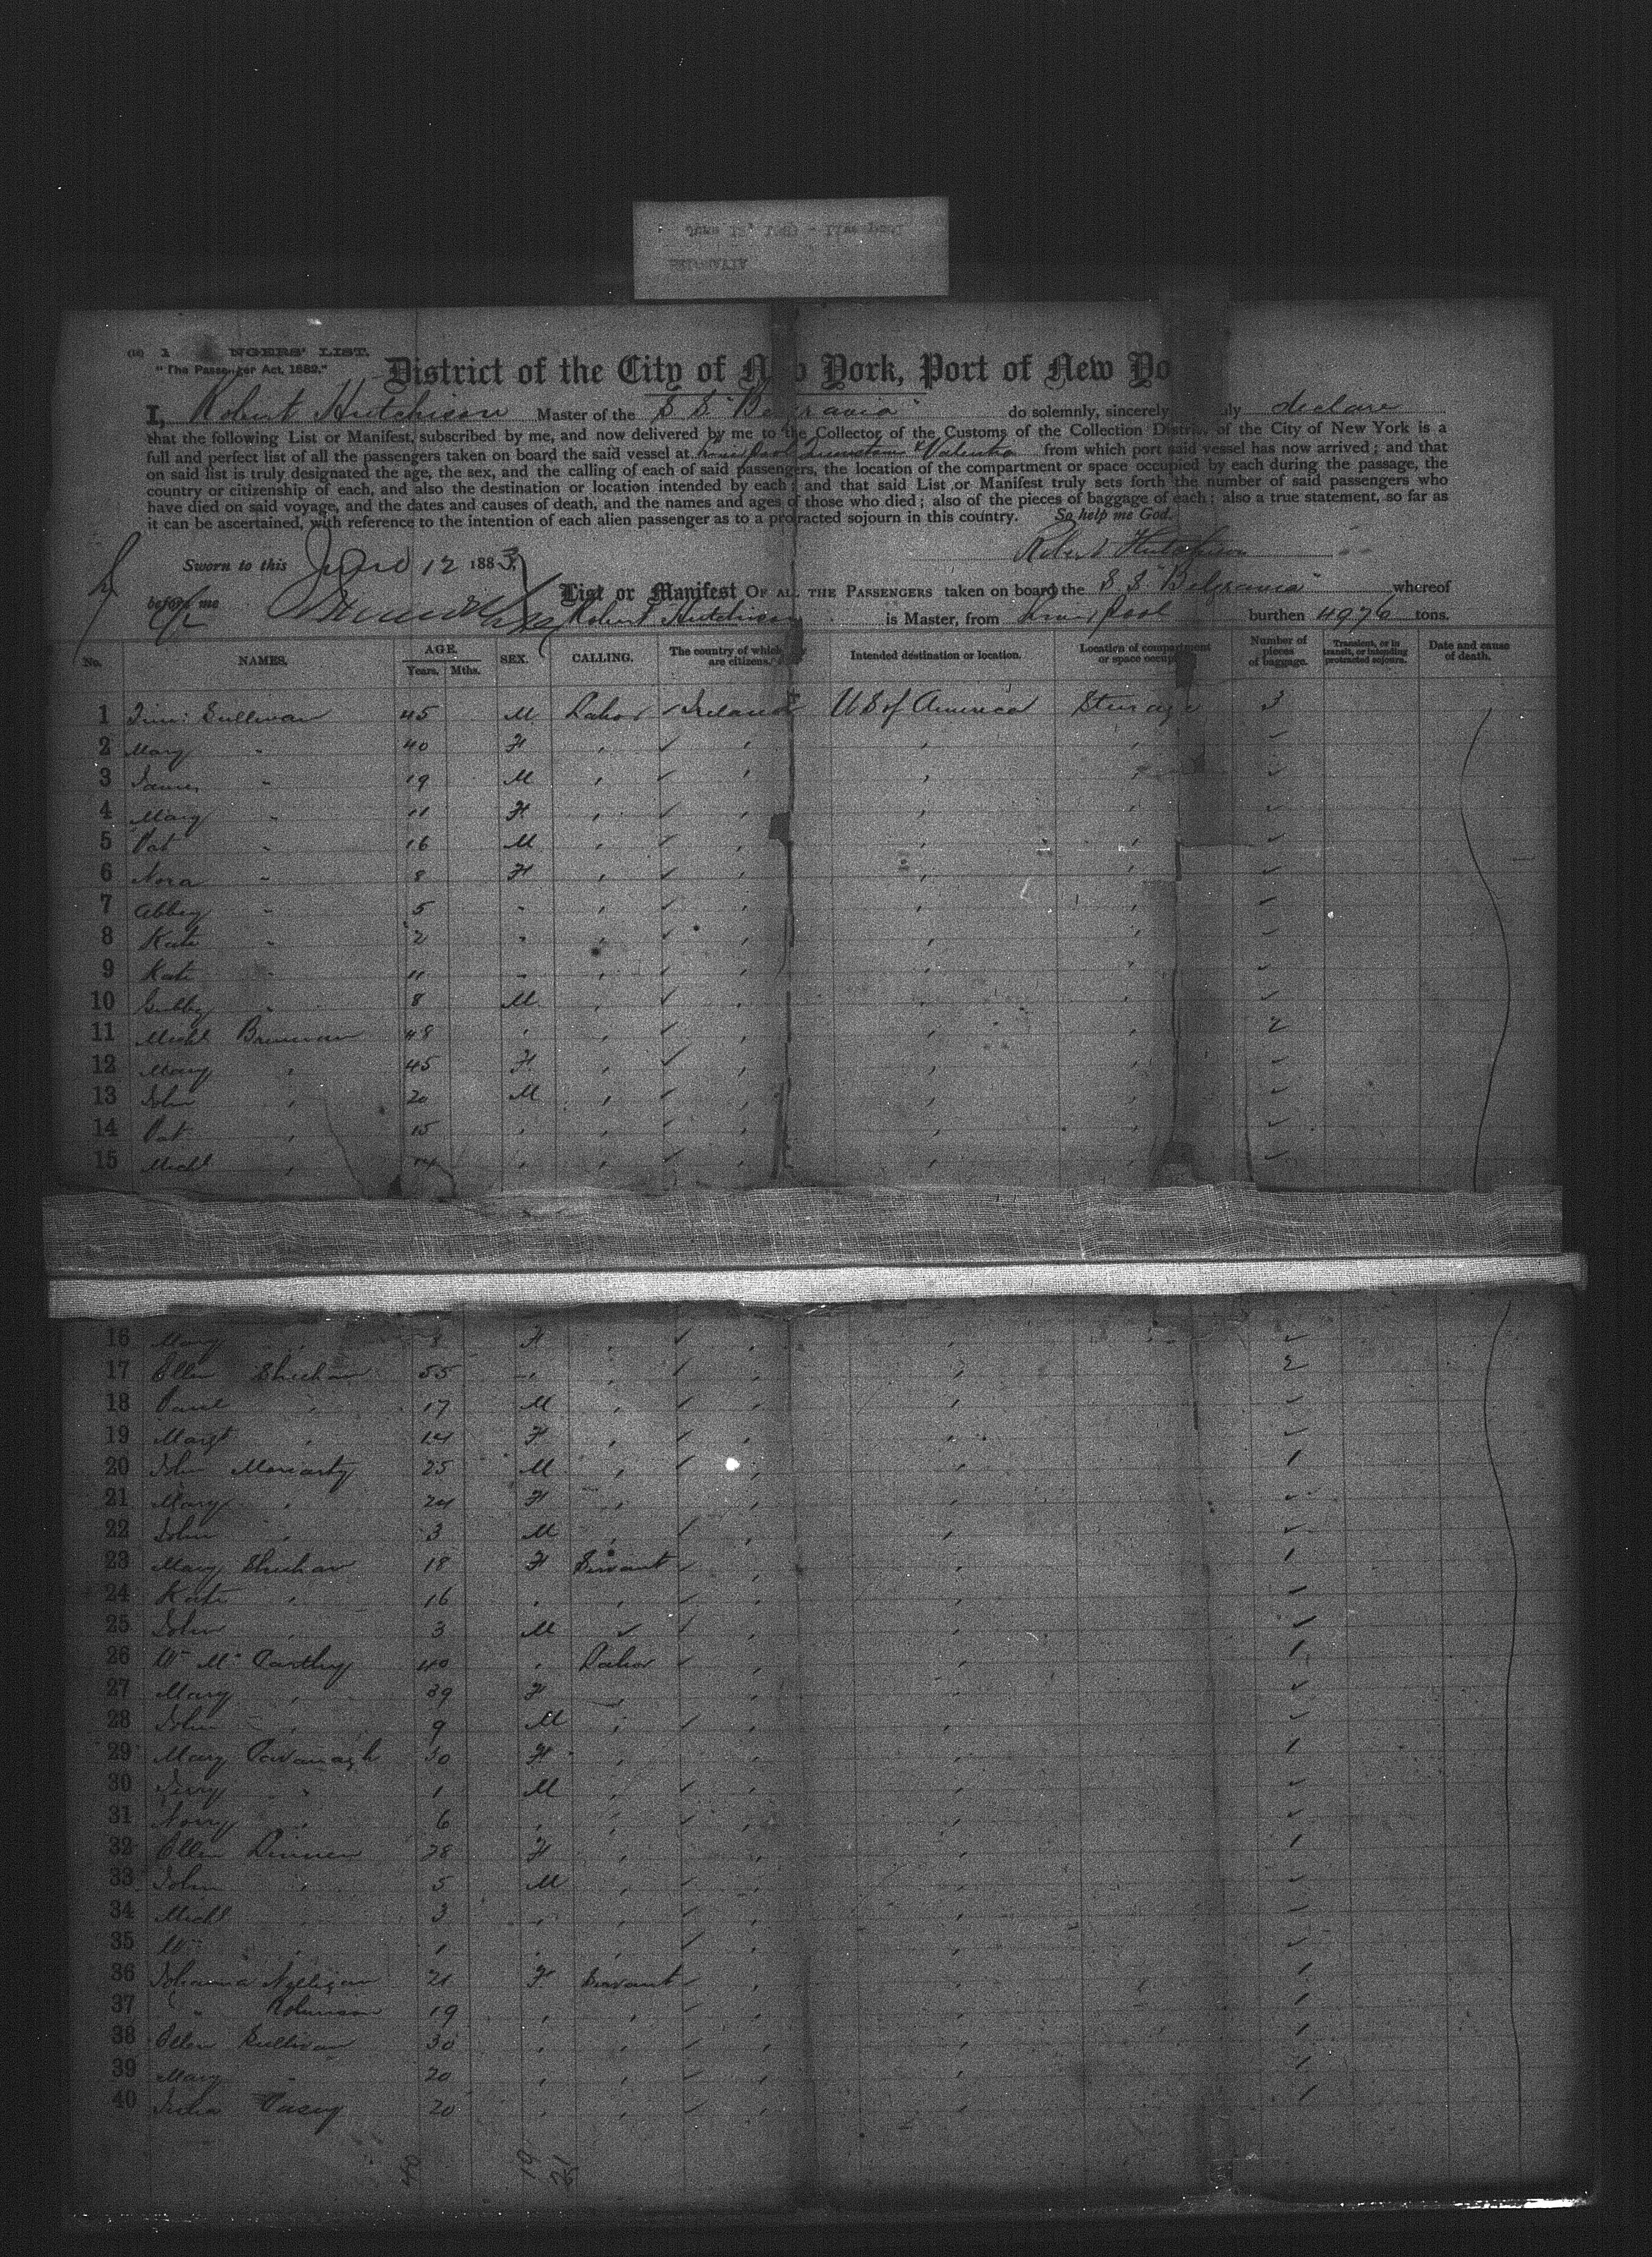 NGERS' LIST.
"The Passenger Act, 1882."
District of the City of New York, Port of New Yo
I, Robert Hutchison Master of the S S "Belgravia" do solemnly, sincerely uly declare
that the following List or Manifest, subscribed by me, and now delivered by me to the Collector of the Customs of the Collection District of the City of New York is a
full and perfect list of all the passengers taken on board the said vessel at Liverpool Queenstown & Valentia from which port said vessel has now arrived; and that
on said list is truly designated the age, the sex, and the calling of each of said passengers, the location of the compartment or space occupied by each during the passage, the
country or citizenship of each, and also the destination or location intended by each; and that said List or Manifest truly sets forth the number of said passengers who
have died on said voyage, and the dates and causes of death, and the names and ages of those who died; also of the pieces of baggage of each; also a true statement, so far as
it can be ascertained, with reference to the intention of each alien passenger as to a protracted sojourn in this country. So help me God.
Robert Hutchison
Sworn to this June 12 1883
before me
List or Manifest OF ALL THE PASSENGERS taken on board the S S "Belgravia" whereof
Robert Hutchison is Master, from Liverpool burthen 4976 tons.
No. NAMES. AGE. Years. Mths. SEX. CALLING. The country of which they are citizens. Intended destination or location. Location of compartment or space occup Number of pieces of baggage. Transient, or in transit, or intending protracted sojourn. Date and cause of death.
1 Tim: Sullivan 45 M Labor Ireland U S of America Steerage 3
2 Mary " 40 F
3 James " 19 M
4 Mary " 11 F
5 Pat " 16 M
6 Nora " 8 F
7 Abbey " 5 "
8 Kate " 2 "
9 Kate " 11 "
10 " 8 M
11 Michl Brennan 48 2
12 Mary " 45 F
13 John " 20 M
14 Pat " 15
15 Michl " 14
16 Mary " 8 F
17 Ellen Sheehan 55 2
18 Paul " 17 M
19 Margt " 14 F
20 John Moriarty 25 M 1
21 Mary " 24 F
22 John " 3 M
23 Mary Sheehan 18 F Servant 1
24 Kate " 16
25 John " 3 M
26 Wm McCarthy 40 Labor 1
27 Mary " 39 F
28 John " 9 M
29 Mary Cavanagh 30 F 1
30 Jerry " 1 M
31 Norry " 6
32 Ellen Dinneen 28 F 1
33 John " 5 M
34 Michl " 3
35 Wm " 1
36 Johanna Nelligan 21 F Servant 1
37 " Robinson 19 1
38 Ellen Sullivan 30 1
39 Mary " 20 1
40 Julia Casey 20 1
40 19 21